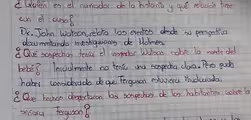 ¿Quién es el narrador de la historia y qué relación tiene
con el caso?
Dr. John Watson, relata los eventos desde su perspectiva
documentando investigaciones de Holmes.
¿Qué sospechas tenía el narrador Watson sobre la del
bebé? Inicialmente no tenía una sospecha clara. Pero pudo
haber considerado que Ferguson estuviera involucrada.
¿Que hechos despertaron las sospechas de los habitantes sobre la
señora Ferguson?